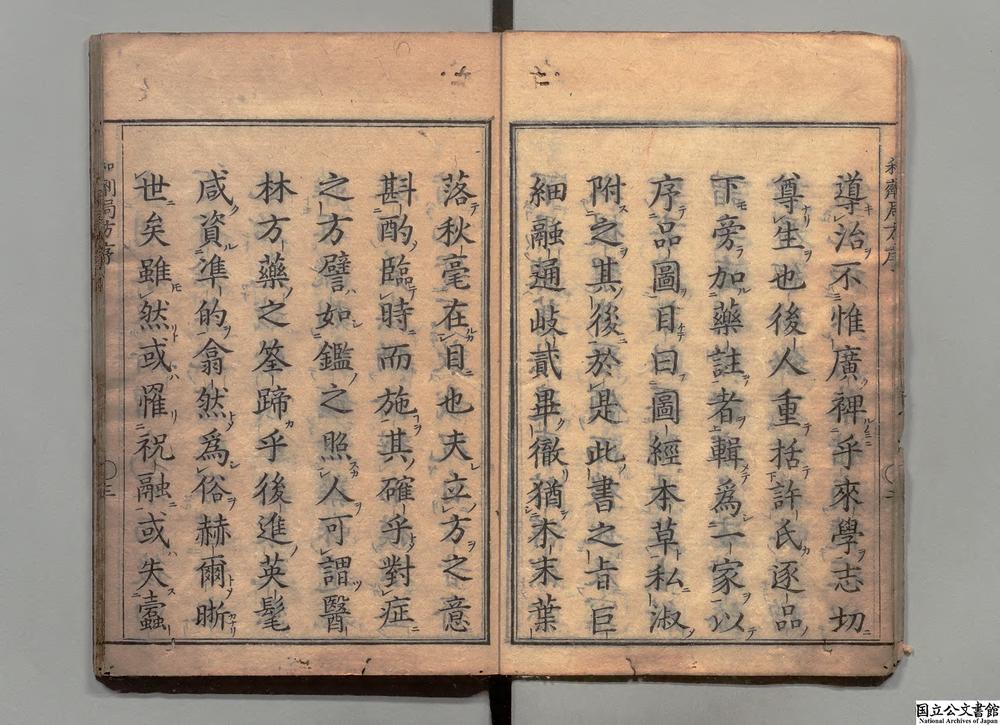 導治不惟廣裨乎來學志切
尊生也後人重括許氏逐品
下旁加藥註者輯爲一家以
序品圖目曰圖經本草私淑
附之其後於是此書之旨巨
細融通岐貳畢徹猶木末葉
落秋毫在目也夫立方之意
斟酌臨時而施其確乎對症
之方譬如鑑之照人可謂醫
林方藥之筌蹄乎後進英髦
咸資準的翕然爲俗赫爾晰
世矣雖然或罹祝融或失蠹
和劑局方序
国立公文書館
National Archives of Japan